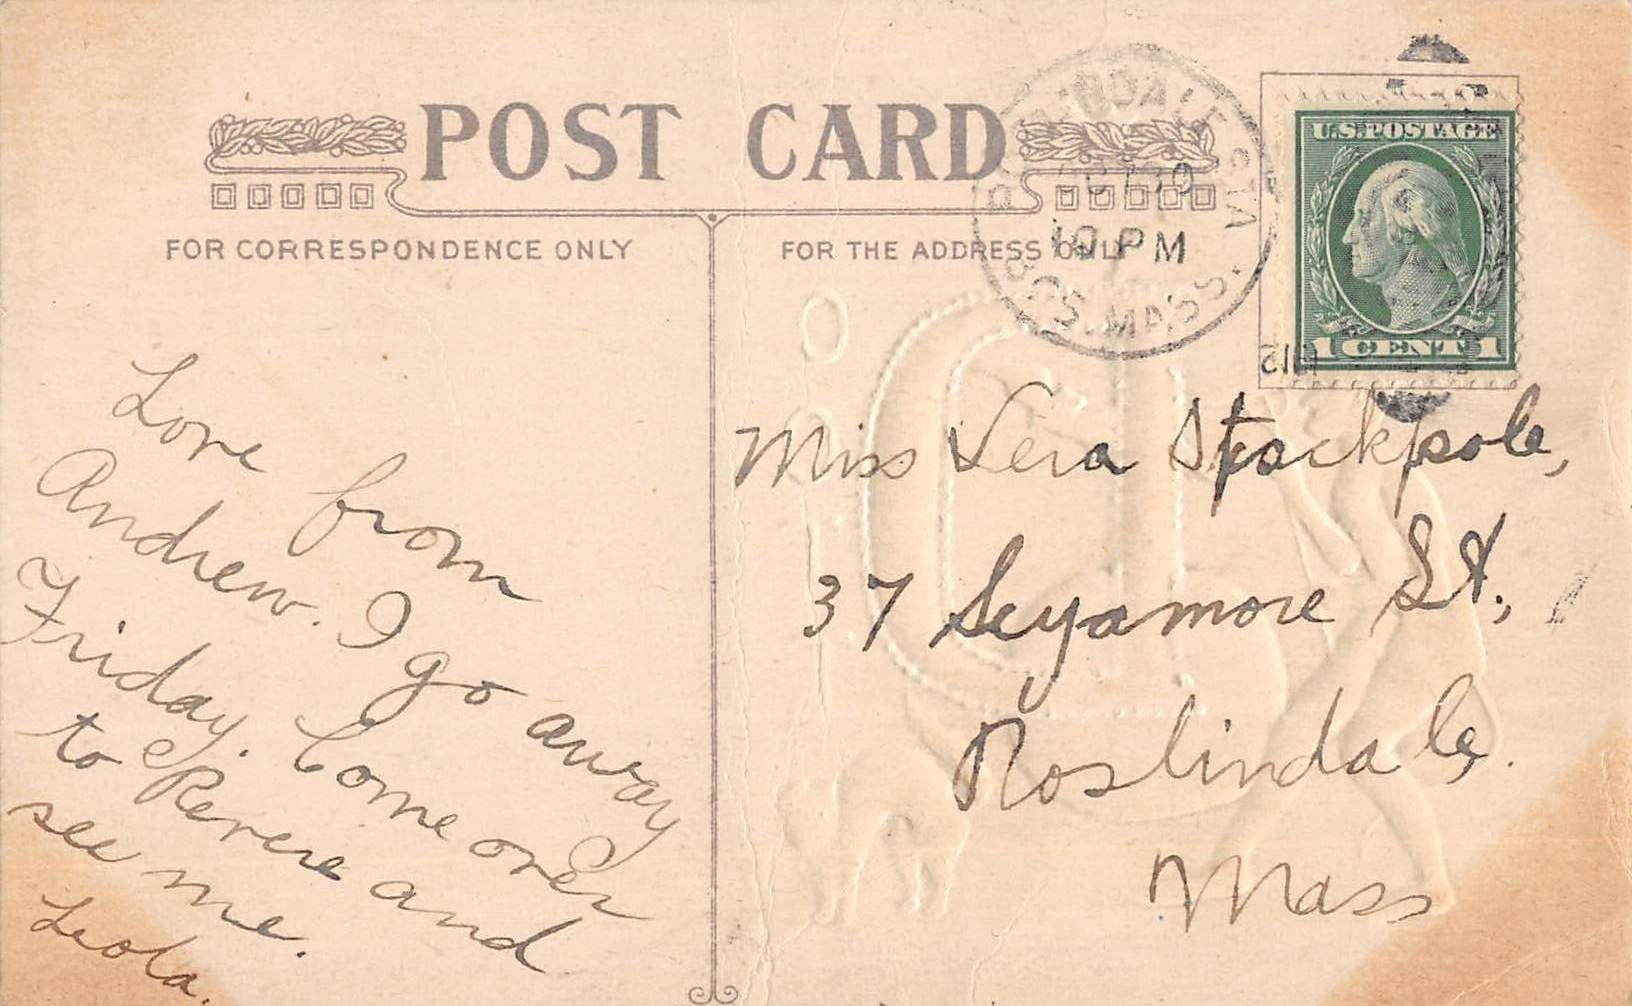 POST CARD
FOR CORRESPONDENCE ONLY
FOR THE ADDRESS ONLY
ROSLINDALE STA
10 PM
BOS. MASS.
U.S. POSTAGE
1 CENT 1
Love from
Andrew. I go away
Friday. Come over
to Revere and
see me.
Leola.
Miss Lera Stackpole,
37 Seyamore St.,
Roslindale.
Mass